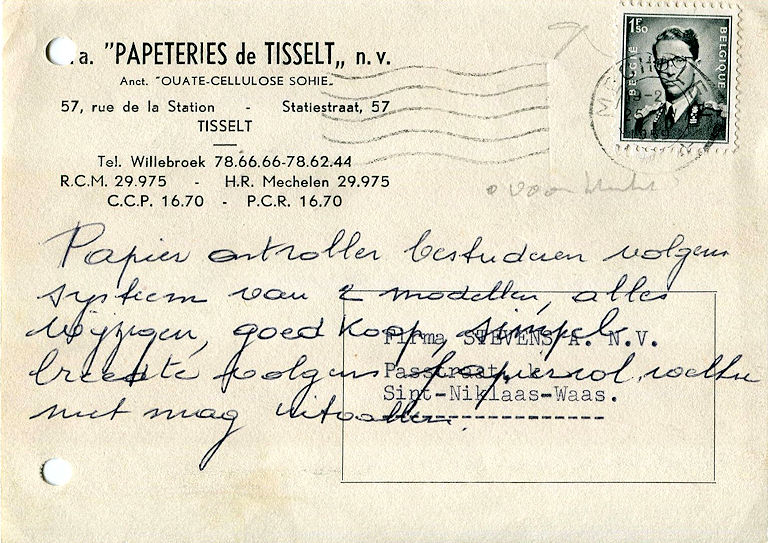 .a. "PAPETERIES de TISSELT„ n. v.
Anct. "OUATE-CELLULOSE SOHIE„
57, rue de la Station - Statiestraat, 57
TISSELT
Tel. Willebroek 78.66.66-78.62.44
R.C.M. 29.975 - H.R. Mechelen 29.975
C.C.P. 16.70 - P.C.R. 16.70
1F50
BELGIË BELGIQUE
MECHE
o voor
Papier ontroller bestuderen volgens
systeem van 2 modellen, alles
wijzigen, goed koop, simpel
breedte volgens papierrol, welke
niet mag uitvallen.
Firma STEVENS A. N.V.
Passtraat,
Sint-Niklaas-Waas.